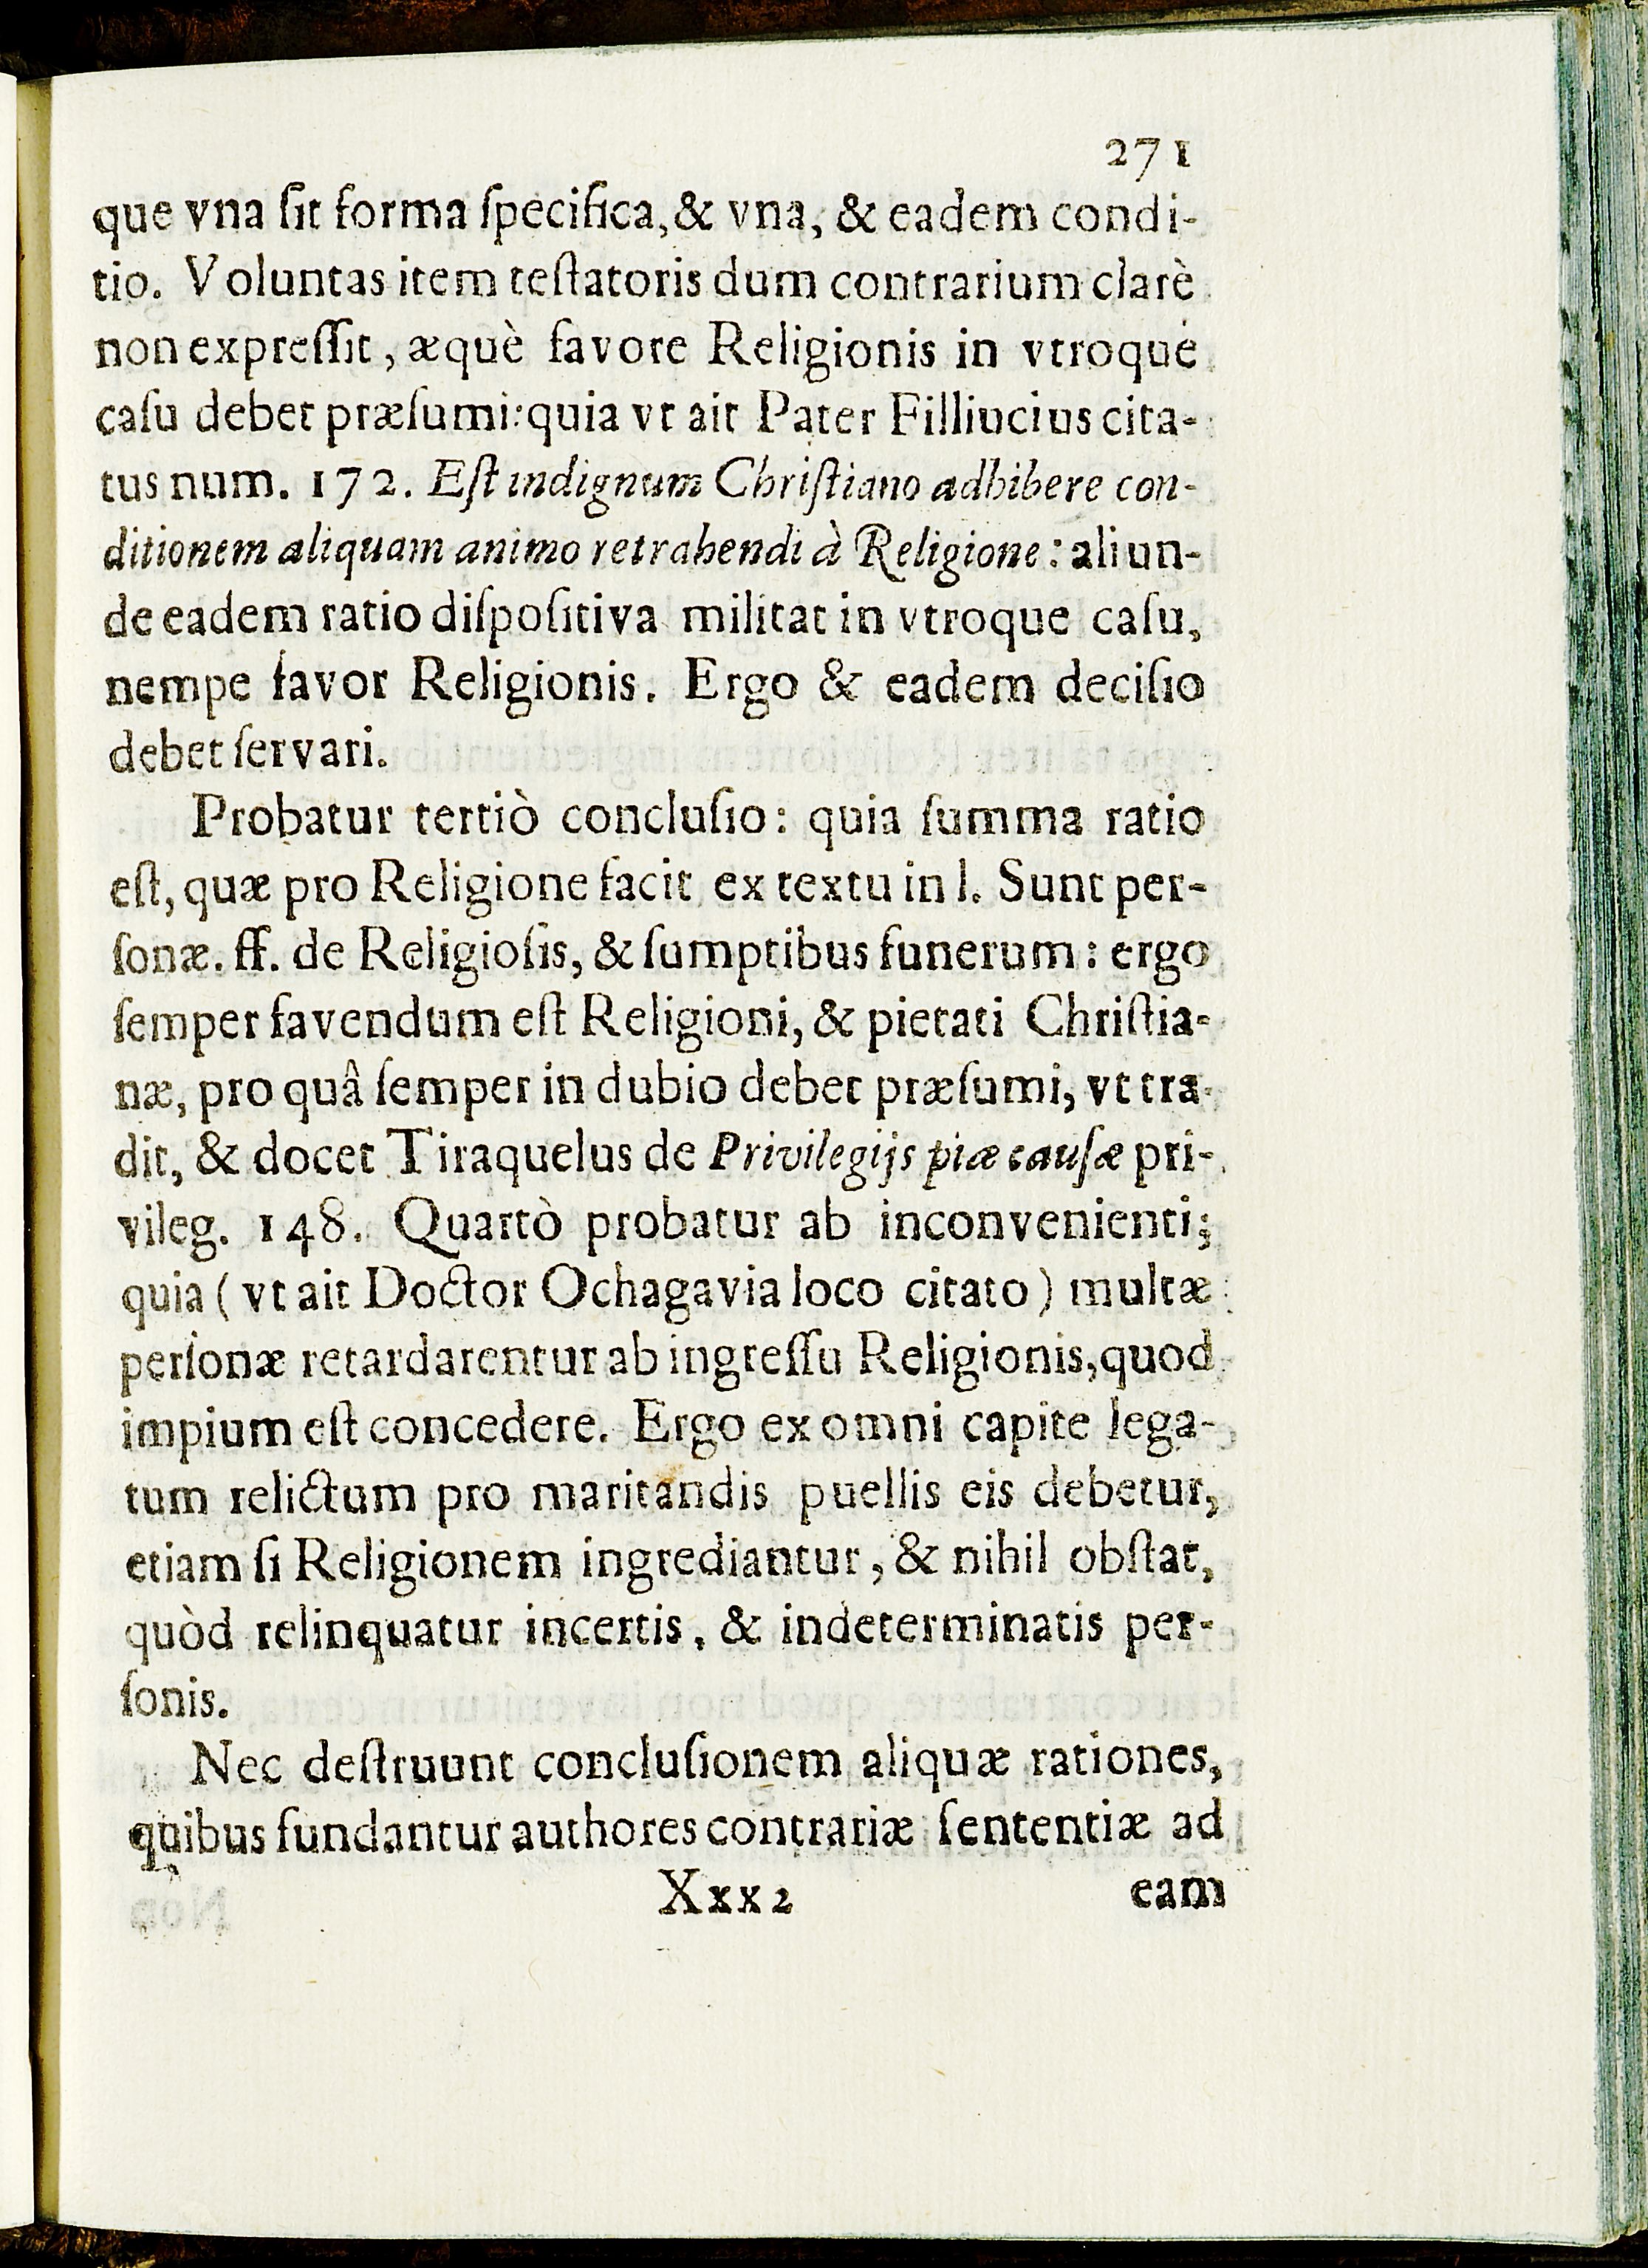 271
que vna ſit forma ſpecifica, & vna, & eadem condi-
tio. Voluntas item teſtatoris dum contrarium clarè
non expreſſit, æquè favore Religionis in vtroque
caſu debet præſumi: quia vt ait Pater Filliucius cita-
tus num. 172. Eſt indignum Chriſtiano adhibere con-
ditionem aliquam animo retrahendi à Religione: aliun-
de eadem ratio diſpoſitiva militat in vtroque caſu,
nempe favor Religionis. Ergo & eadem deciſio
debet ſervari.
Probatur tertiò concluſio: quia ſumma ratio
eſt, quæ pro Religione facit ex textu in l. Sunt per-
ſonæ. ff. de Religioſis, & ſumptibus funerum: ergo
ſemper favendum eſt Religioni, & pietati Chriſtia-
næ, pro quâ ſemper in dubio debet præſumi, vt tra-
dit, & docet Tiraquelus de Privilegijs piæ cauſæ pri-
vileg. 148. Quartò probatur ab inconvenienti;
quia (vt ait Doctor Ochagavia loco citato) multæ
perſonæ retardarentur ab ingreſſu Religionis, quod
impium eſt concedere. Ergo ex omni capite lega-
tum relictum pro maritandis puellis eis debetur,
etiam ſi Religionem ingrediantur, & nihil obſtat,
quòd relinquatur incertis, & indeterminatis per-
ſonis.
Nec deſtruunt concluſionem aliquæ rationes,
quibus fundantur authores contrariæ ſententiæ ad
Xxx2 eam